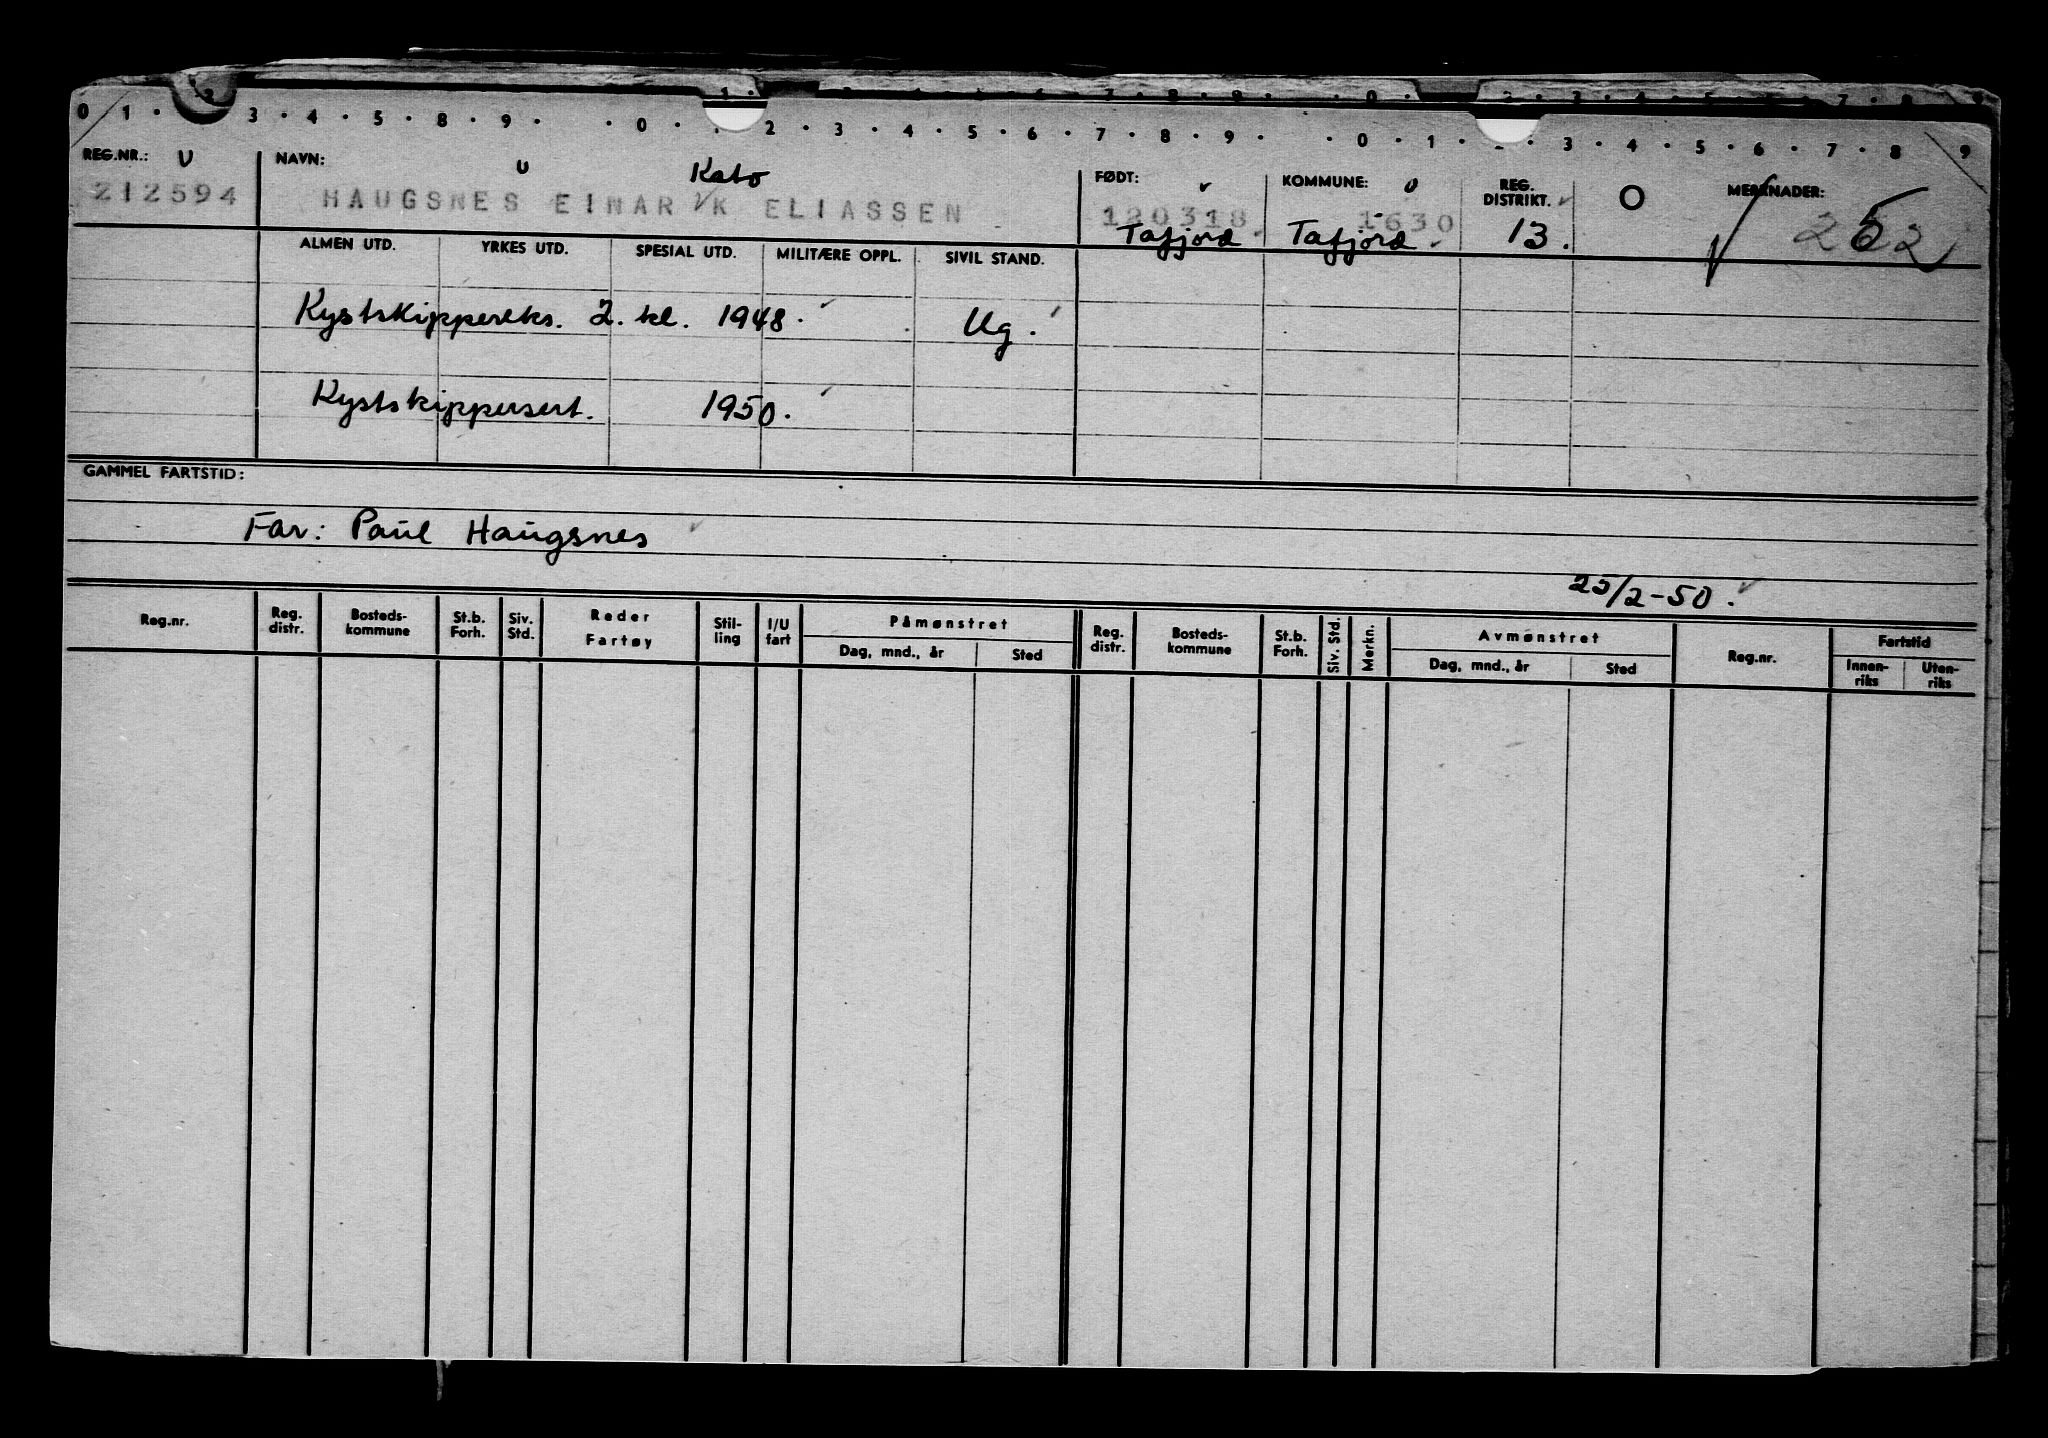 0 1 · 2 3 · 4 · 5 · 8 · 9 · · 0 · · 2 · 3 · 4 · 5 · 6 · 7 · 8 · 9 · · 0 · 1 · 3 · 4 · 5 · 6 · 7 · 8 · 9
REG.NR.: NAVN: Kato FØDT: KOMMUNE: REG. DISTRIKT. O MERKNADER:
212594 HAUGSNES EINAR K ELIASSEN 120318. 1630
Tafjord Tafjord. 13. 5
ALMEN UTD. YRKES UTD. SPESIAL UTD. MILITÆRE OPPL. SIVIL STAND.
Kystskippereks. 2. kl. 1948. Ug.
Kystskippersert. 1950.
GAMMEL FARTSTID:
Far: Paul Haugsnes
25/2-50.
Reg.nr. Reg. distr. Bosteds-kommune St.b. Forh. Siv. Std. Reder Fartøy Stil-ling I/U fart Påmønstret Reg. distr. Bosteds-kommune St.b. Forh. Siv. Std. Merkn. Avmønstret Reg.nr. Fartstid
Dag, mnd., år Sted Dag, mnd., år Sted Innen-riks Uten-riks